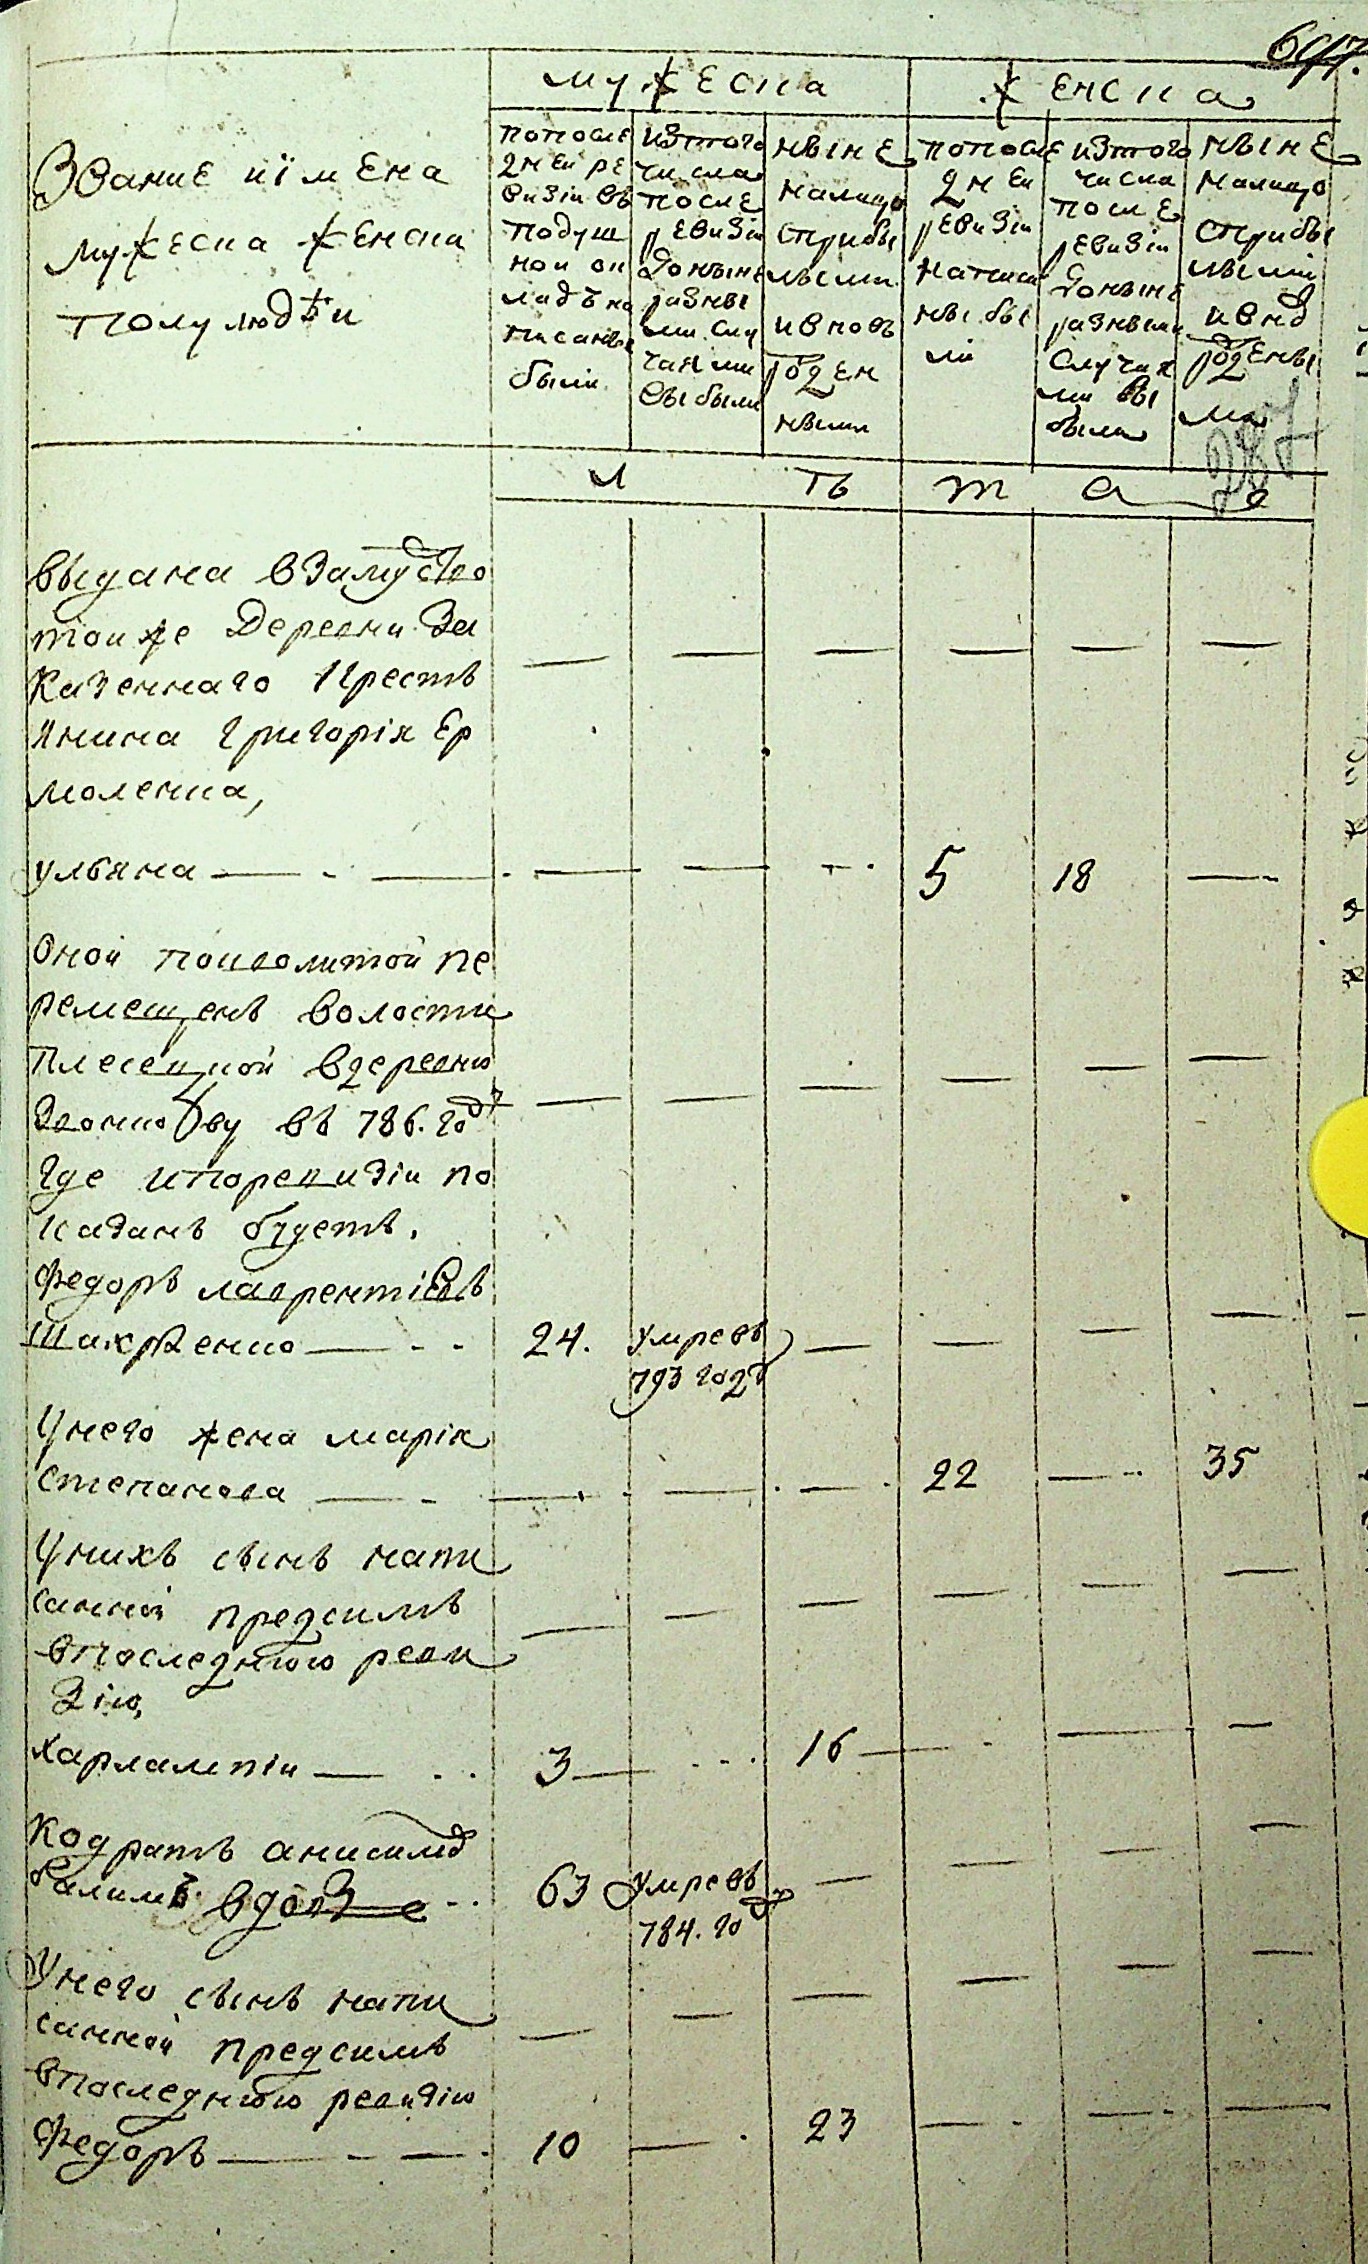 697.
мужеска
женска
Звание иімена
мужеска женска
полу людѣи
попосле
днеи ре
визіи въ
подуш
нои ок
ладѣ на
писаны
были
изтого
числа
после
ревизіи
донынѣ
разны
ми слу
чаями
выбыли
нынѣ
налицо
сприбы
лыми
ивновь
рожден
ными
попосле
днеи
ревизіи
написа
ны бы
ли
изтого
числа
после
ревизіи
донынѣ
разными
случая
ми вы
были
нынѣ
налицо
сприбы
лыми
ивно
рожденны
ма
287
л ѣ т а
выдана взамуство
тоиже Деревни За
казеннаго Кресть
янина Григорія Ер
моленка,
ульяна 5 18
Оной поиволитой пе
ремещенъ волости
Плесецкой вдеревню
въ 786. год
где ипоревизіи по
казанъ будетъ.
Федоръ лаврентіевъ
24. умревъ
793 году
Унего жена марія
степанова 22 35
Унихъ сынъ напи
санной предсимъ
впоследнюю реви
зію,
харлампіи 3 16
Кодратъ анисимо
вдове 63 умревъ
784. год
Унего сынъ напи
санной предсимъ
впоследнюю ревизію
Федоръ 10 23